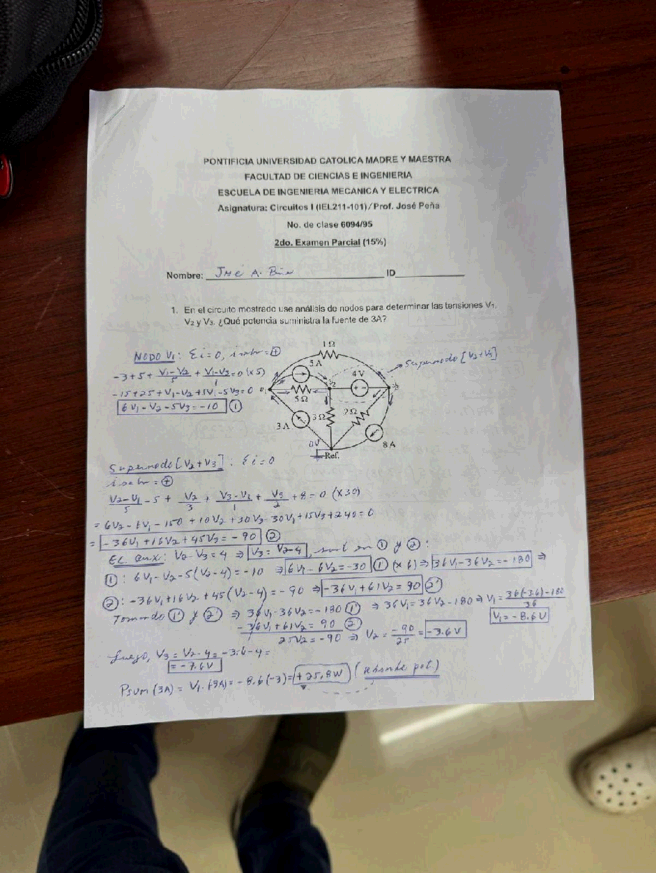 PONTIFICIA UNIVERSIDAD CATOLICA MADRE Y MAESTRA
FACULTAD DE CIENCIAS E INGENIERIA
ESCUELA DE INGENIERIA MECANICA Y ELECTRICA
Asignatura: Circuitos I (IEL211-101) / Prof. José Peña
No. de clase 6094/95
2do. Examen Parcial (15%)
Nombre: José A. ID
1. En el circuito mostrado use análisis de nodos para determinar las tensiones V1,
V2 y V3. ¿Qué potencia suministra la fuente de 3A?
NODO V1: Σi=0, i sale = +
-3+5+ (V1-V2)/5 + (V1-V3)/1 = 0 (x5)
-15+25+V1-V2+5V1-5V3=0
6V1-V2-5V3=-10 ①
1Ω
5A
4V
5Ω
3Ω
2Ω
3A
8A
0V
Ref.
Supernodo [V2+V3]
Supernodo [V2+V3]: Σi=0
i sale = +
(V2-V1)/5 -5 + V2/3 + (V3-V1)/1 + V3/2 +8=0 (x30)
= 6V2-6V1-150+10V2+30V3-30V1+15V3+240=0
= -36V1+16V2+45V3=-90 ②
Ec. aux: V2-V3=4 ⇒ V3=V2-4, en ① y ②:
①: 6V1-V2-5(V2-4)=-10 ⇒ 6V1-6V2=-30 ①' (x6) ⇒ 36V1-36V2=-180 ⇒
②: -36V1+16V2+45(V2-4)=-90 ⇒ -36V1+61V2=90 ②'
Tomando ①' y ②' ⇒ 36V1-36V2=-180 ①' ⇒ 36V1=36V2-180 ⇒ V1= (36(-3.6)-180)/36
-36V1+61V2=90 ②
V1=-8.6V
25V2=-90 ⇒ V2= -90/25 = -3.6V
Luego, V3=V2-4=-3.6-4=
=-7.6V
Psum(3A) = V1·(-3A) = -8.6(-3) = +25.8W (absorbe pot.)